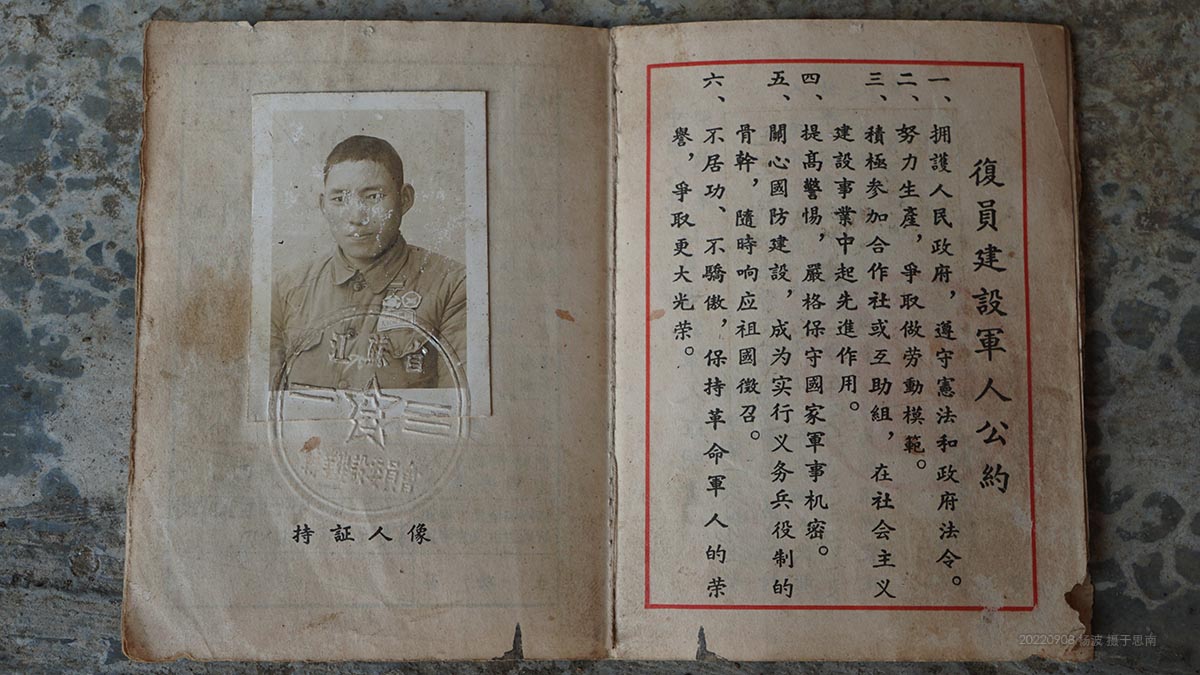 復員建設軍人公約
一、拥護人民政府，遵守憲法和政府法令。
二、努力生產，爭取做劳動模範。
三、積極参加合作社或互助組，在社会主义
建設事業中起先進作用。
四、提高警惕，嚴格保守國家軍事机密。
五、關心國防建設，成为实行义务兵役制的
骨幹，隨時响应祖國徵召。
六、不居功、不驕傲，保持革命軍人的荣
譽，爭取更大光荣。
江蘇省
建設委員會
持証人像
20220903 杨波 摄于思南